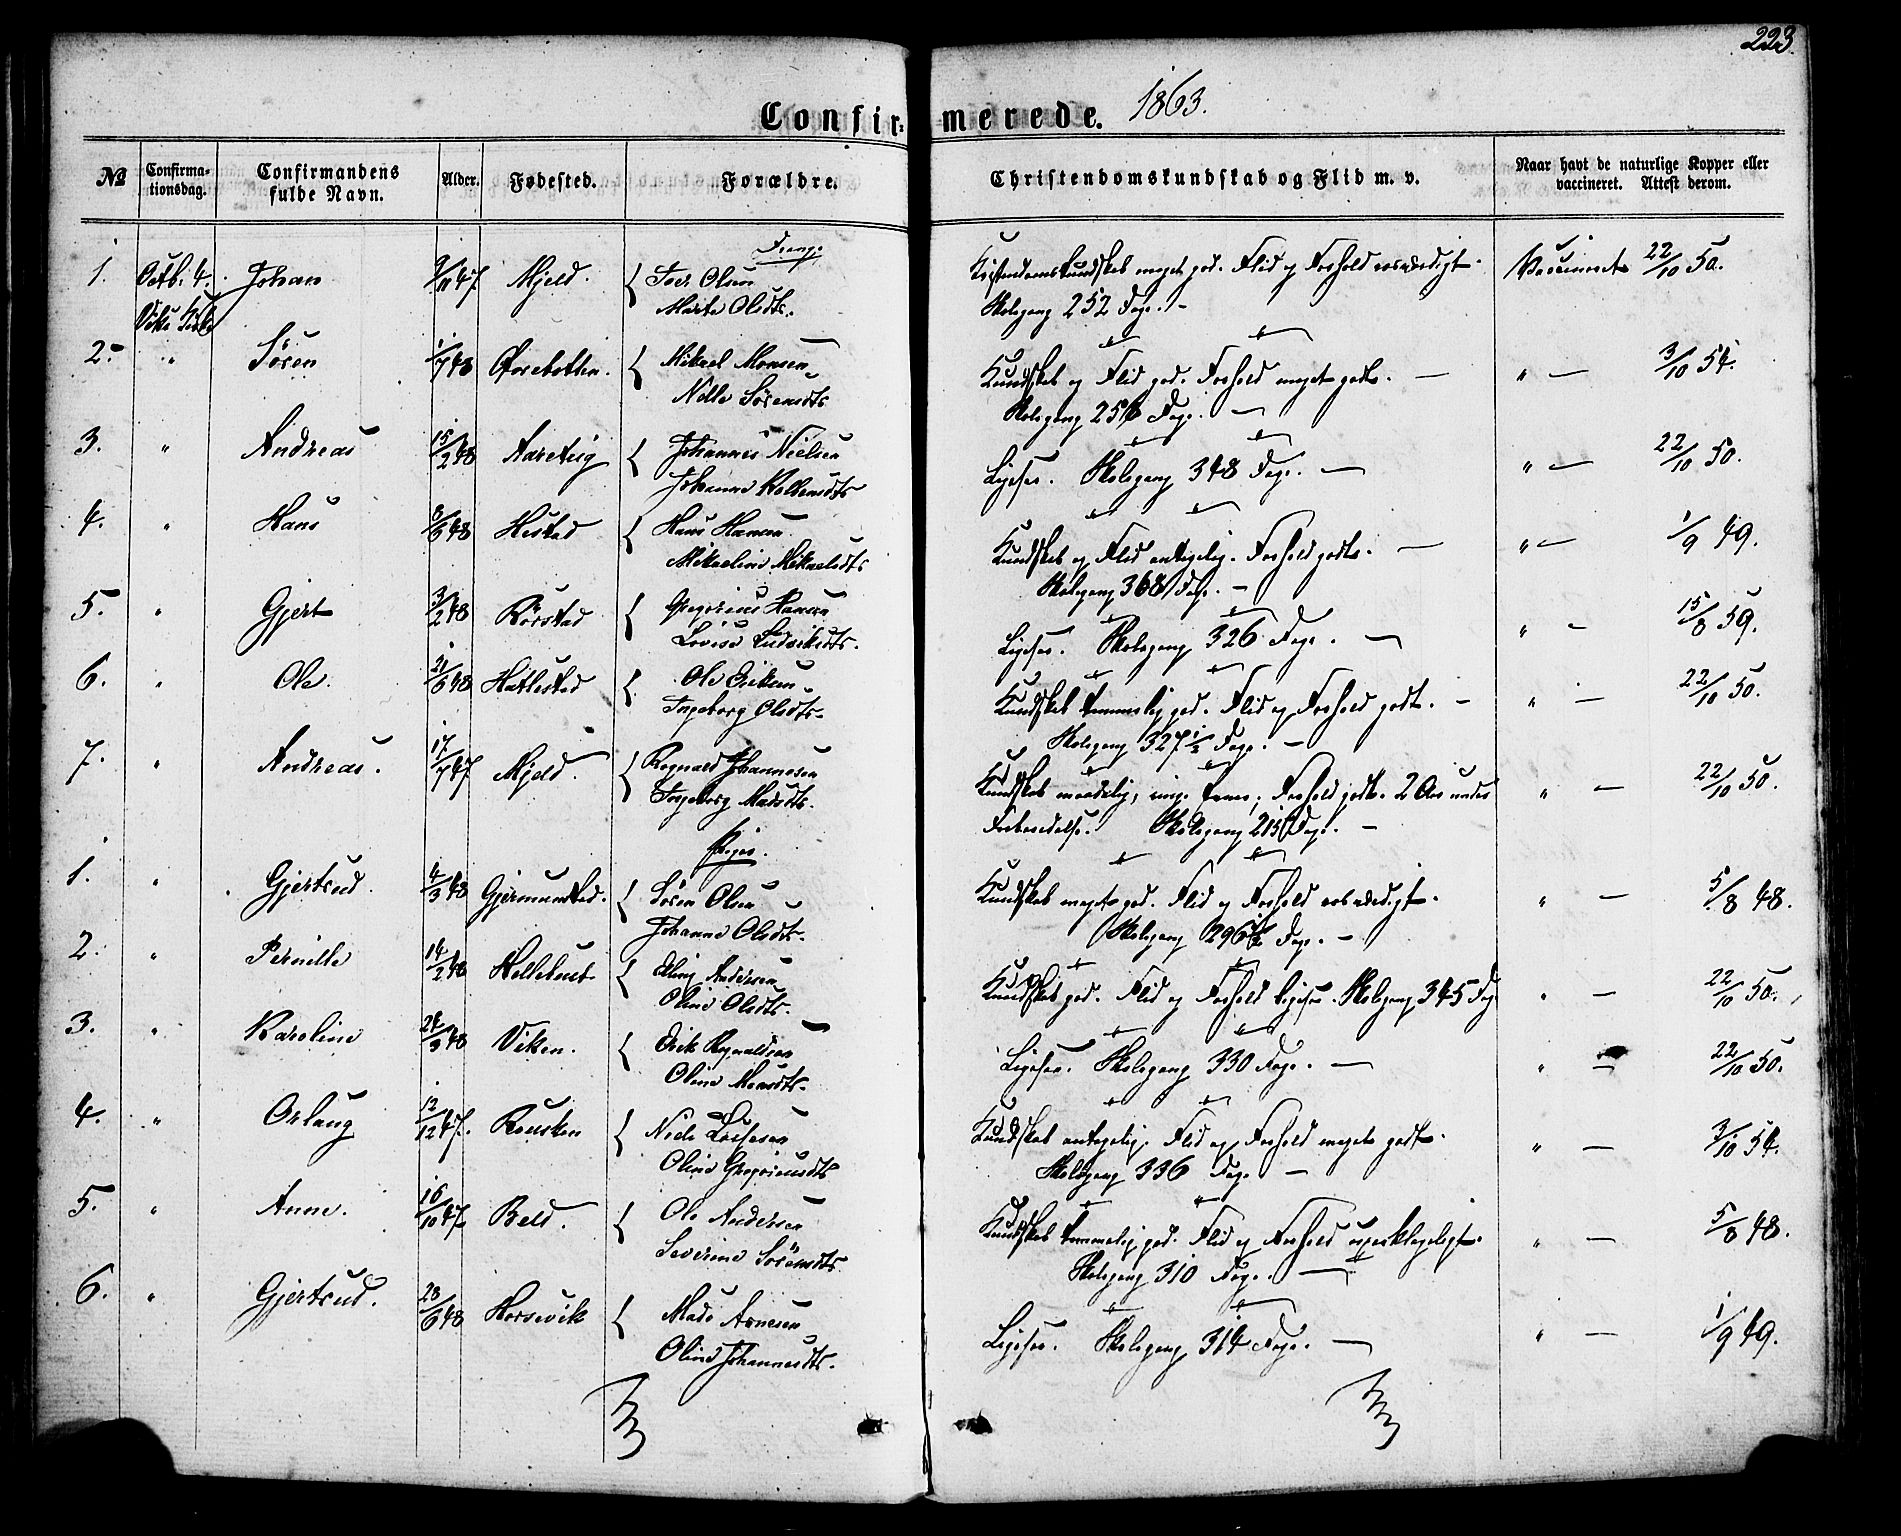 223.
Confirmerede. 1863.
№ Confirmationsdag. Confirmandens fulde Navn. Alder. Fødested. Forældre. Christendomskundskab og Flid m. v. Naar havt de naturlige Kopper eller vaccineret. Attest derom.
1. Octb. 4. Johan 9/11 47 Mjeld. { Iver Olsen Kristendomskundskab meget god. Flid og Forhold rosværdigt. Vaccineret 22/10 50.
Viks Kirke Marta Olsdtr. Skolegang 252 Dage. -
2. " Sören 1/7 48 { Mikael Monsen Kundskab og Flid god. Forhold meget godt. — " — 3/10 54.
Nille Sörensdtr Skolegang Dage. —
3. " Andreas 15/2 48 Aareteig { Johannes Nielsen Ligesaa. Skolegang 348 Dage. — " — 22/10 50.
Johanne
4. " Hans 8/6 48 Hestad { Hans Hansen Kundskab og Flid antagelig. Forhold godt. — " — 1/9 49.
Mikaeline Mikaelsdtr Skolegang 368 Dage. —
5. " Gjert 3/2 48 Rörstad { Gregorius Hansen Ligesaa. Skolegang 326 Dage. — " - 15/8 59.
Lovise Ludviksdtr.
6. " Ole. 21/6 48 Hatlestad { Ole Eriksen Kundskab temmelig god. Flid og Forhold godt. — " — 22/10 50.
Ingeborg Olsdtr. Skolegang 327 1/2 Dage. —
7. " Andreas. 17/7 47 Mjeld. { Rognald Johannesen Kundskab maadelig, ringe Evner, Forhold godt. 2 Aar under " — 22/10 50.
Ingeborg Madsdtr. Forberedelse. Skolegang Dage. —
Piger.
1. " Gjertrud. 4/3 48 Gjermundstad. { Sören Olsen Kundskab meget god. Flid og Forhold rosværdigt. " — 5/8 48.
Johanne Olsdtr. Skolegang 296 1/2 Dage. —
2. " Pernille 14/2 48 Hellebust { Elling Andersen Kundskab god. Flid og Forhold ligesaa. Skolegang 345 Dage " — 22/10 50.
Oline Olsdtr.
3. " Karoline 24/3 48 Viken. { Erik Rognaldsen Ligesaa. Skolegang 330 Dage. — " — 22/10 50.
Oline Monsdtr.
4. " Orlaug 12/12 47. Rousken { Niels Kundskab antagelig. Flid og Forhold meget godt. " — 3/10 54.
Oline Gregoriusdtr Skolegang 336 Dage —
5. " Anne. 16/10 47. Beld. { Ole Andersen Kundskab temmelig god. Flid og Forhold upaaklageligt. " — 5/8 48.
Severine Sörensdtr. Skolegang 310 Dage. —
6. " Gjertrud. 23/6 48 Horsevik { Mads Arnesen Ligesaa. Skolegang 314 Dage. — " — 1/9 49.
Oline Johannesdtr.